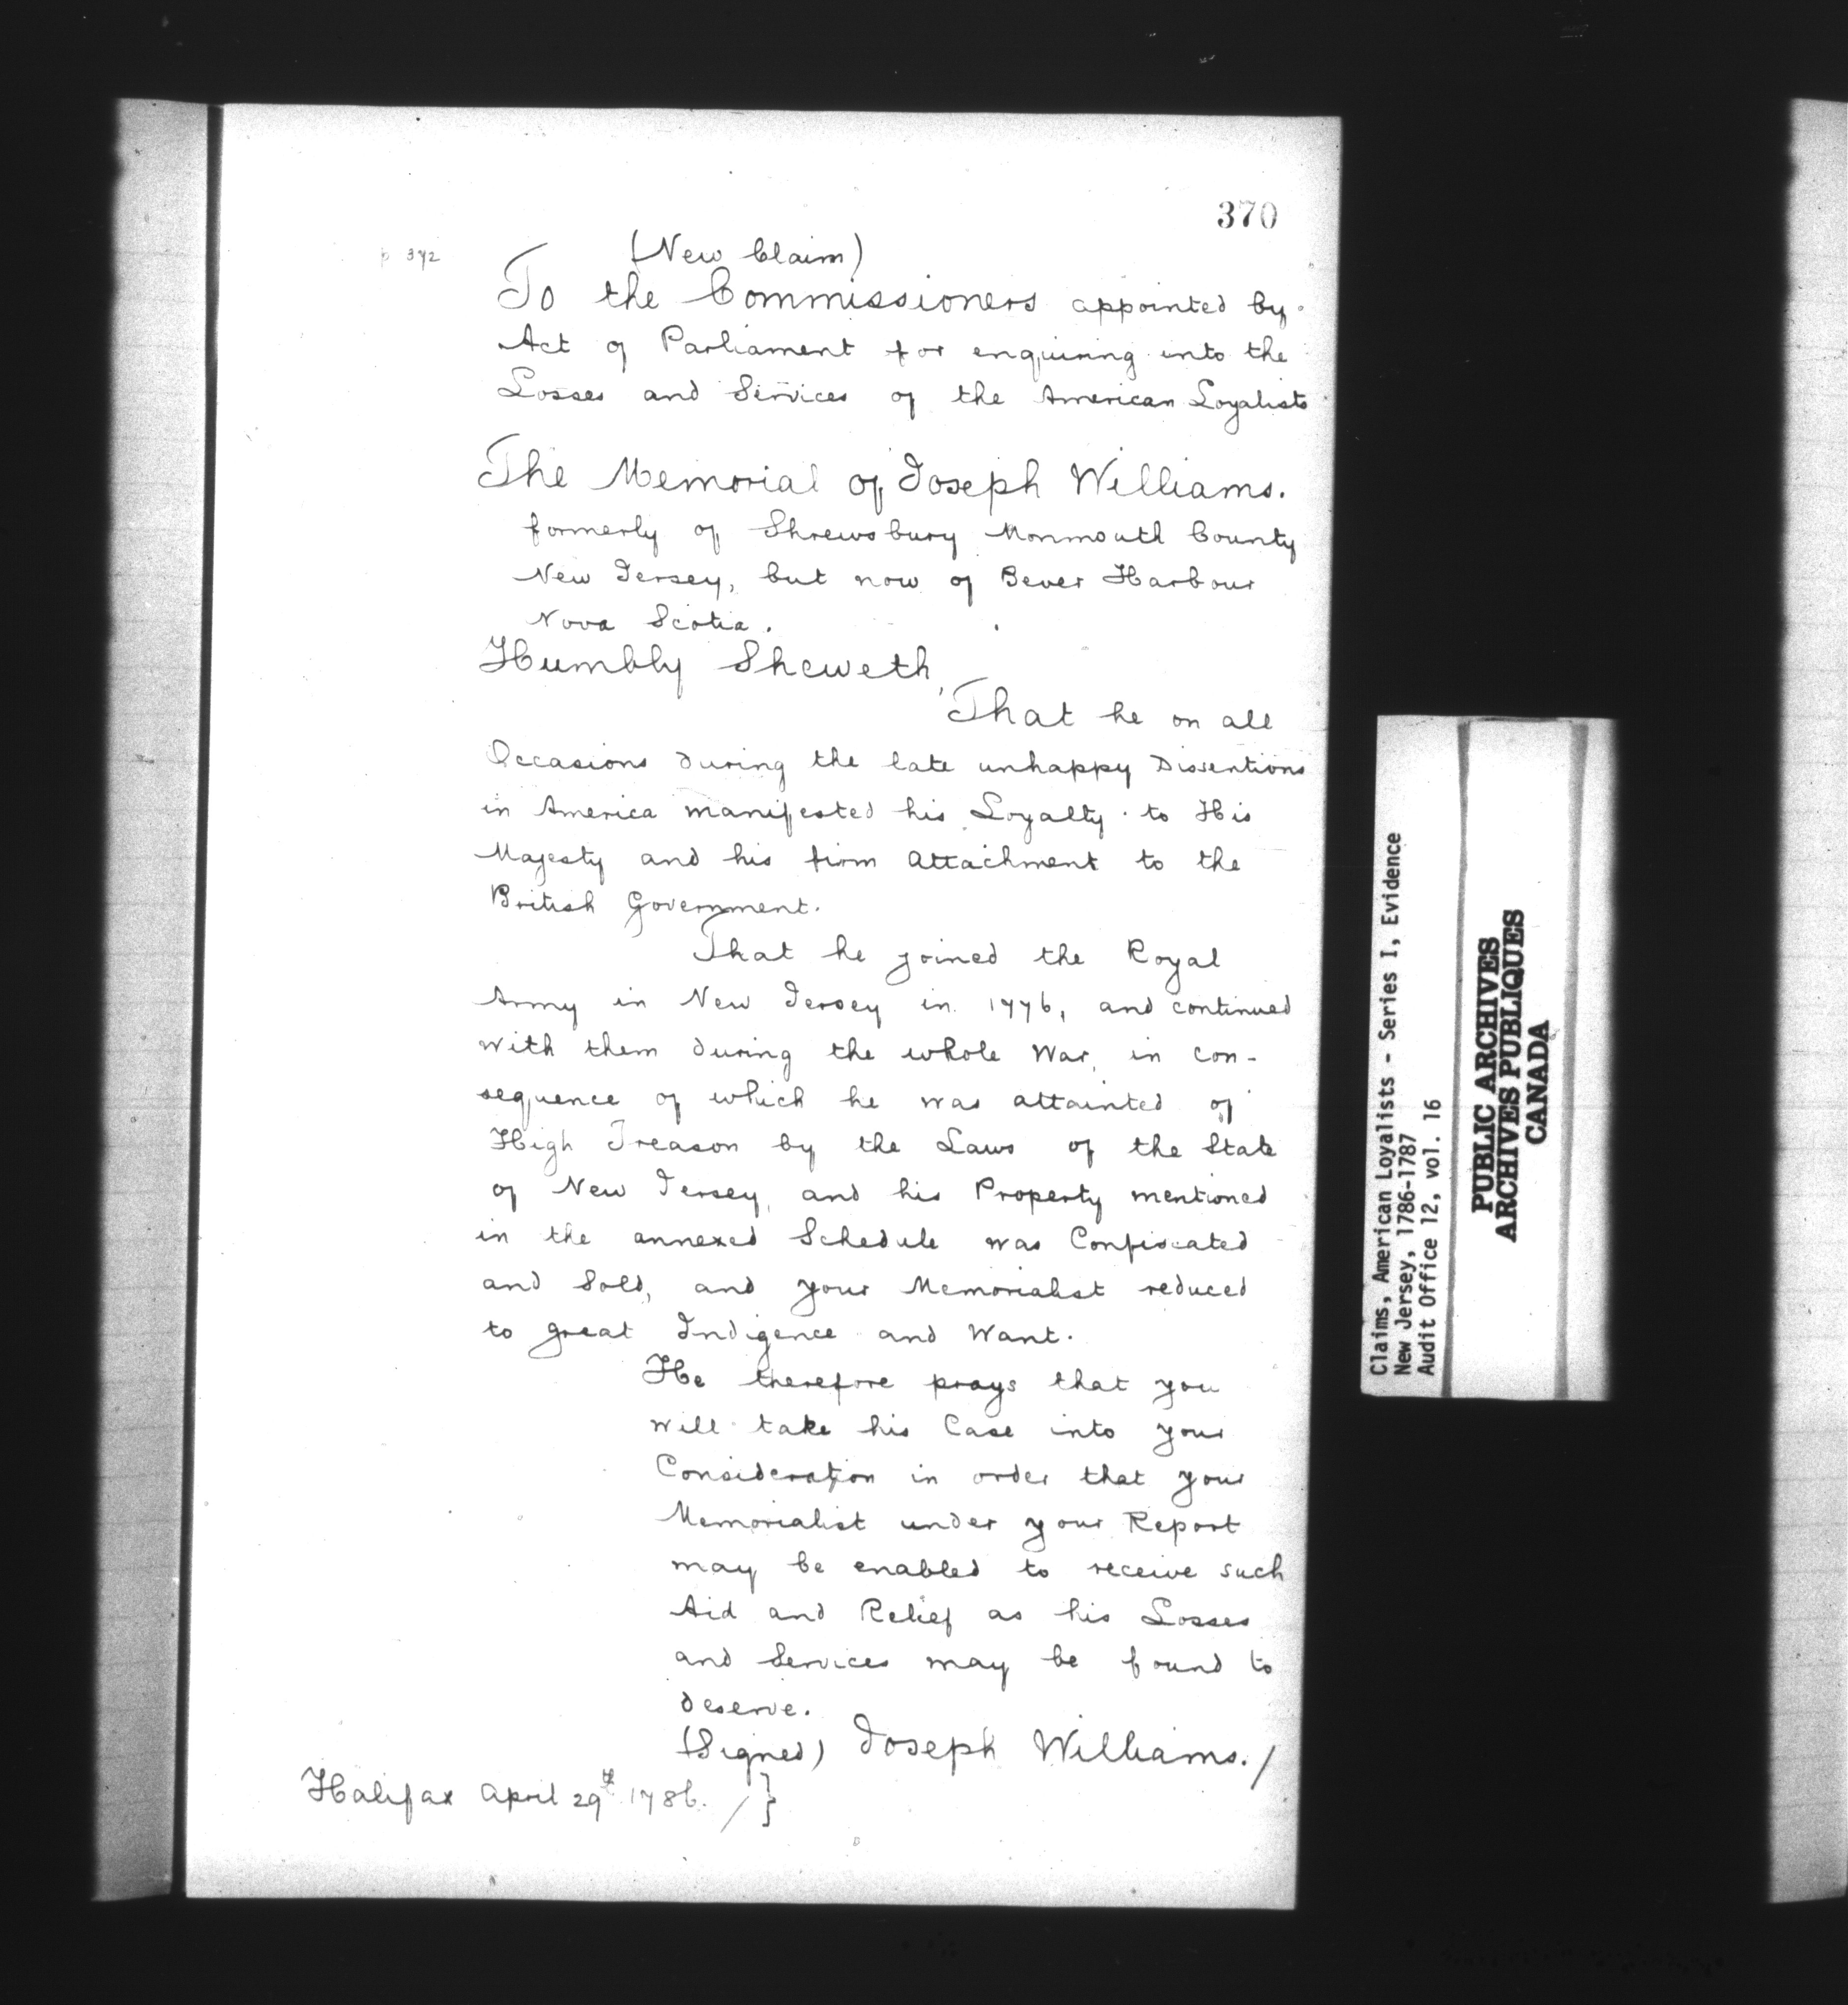 370
p 372
(New Claim)
To the Commissioners appointed by
Act of Parliament for enquiring into the
Losses and Services of the American Loyalists
The Memorial of Joseph Williams.
formerly of Shrewsbury Monmouth County
New Jersey, but now of Bever Harbour
Nova Scotia.
Humbly Sheweth,
That he on all
Occasions during the late unhappy Dissentions
in America manifested his Loyalty to His
Majesty and his firm attachment to the
British Government.
That he joined the Royal
Army in New Jersey in 1776, and continued
with them during the whole War, in con-
sequence of which he was attainted of
High Treason by the Laws of the State
of New Jersey, and his Property mentioned
in the annexed Schedule was Confiscated
and Sold, and your Memorialist reduced
to great Indigence and Want.
He therefore prays that you
will take his Case into your
Consideration in order that your
Memorialist under your Report
may be enabled to receive such
Aid and Relief as his Losses
and Services may be found to
deserve.
(Signed) Joseph Williams./
Halifax April 29th 1786. / }
Claims, American Loyalists - Series I, Evidence
New Jersey, 1786-1787
Audit Office 12, vol. 16
PUBLIC ARCHIVES
ARCHIVES PUBLIQUES
CANADA